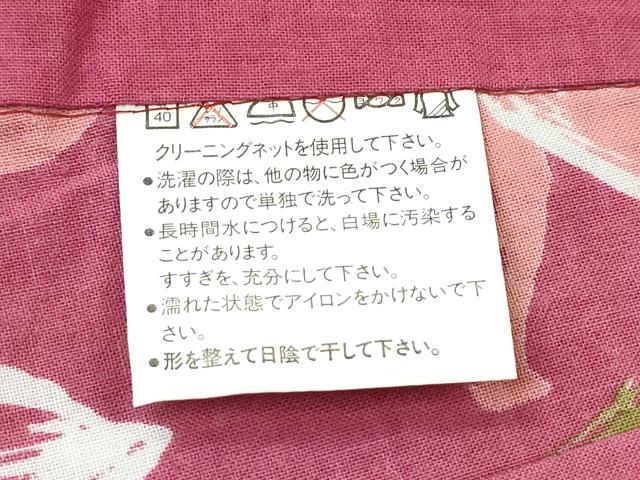 40
中
クリーニングネットを使用して下さい。
●洗濯の際は、他の物に色がつく場合が
ありますので単独で洗って下さい。
●長時間水につけると、白場に汚染する
ことがあります。
すすぎを、充分にして下さい。
●濡れた状態でアイロンをかけないで下
さい。
●形を整えて日陰で干して下さい。